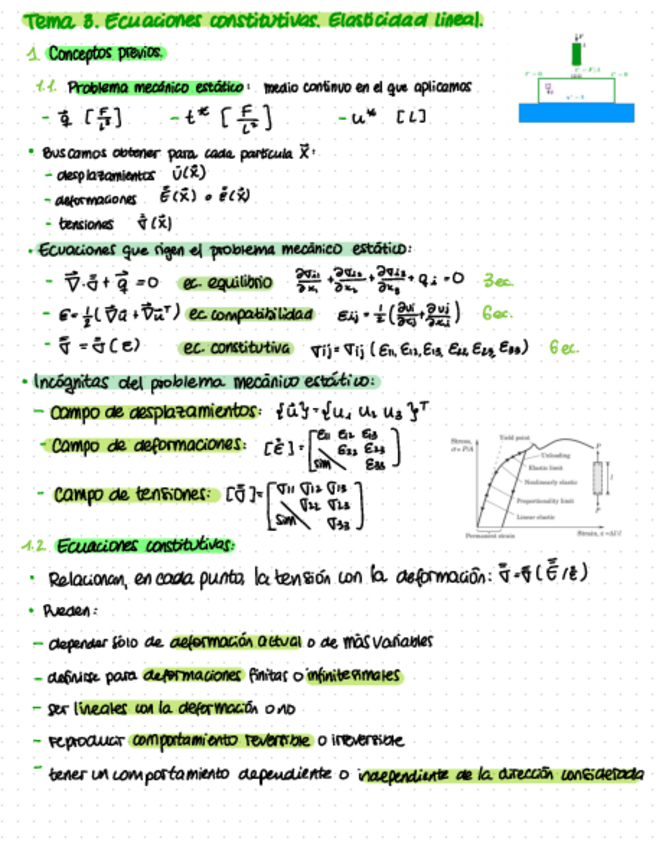 Tema 3. Ecuaciones constitutivas. Elasticidad lineal.
1. Conceptos previos.
1.1. Problema mecánico estático: medio continuo en el que aplicamos
- q⃗ [F/L³] - t* [F/L²] - u* [L]
• Buscamos obtener para cada partícula X⃗:
- desplazamientos U(X⃗)
- deformaciones E(X⃗) o ε(X⃗)
- tensiones σ(X⃗)
• Ecuaciones que rigen el problema mecánico estático:
- ∇·σ + q⃗ = 0 ec. equilibrio ∂σi1/∂x1 + ∂σi2/∂x2 + ∂σi3/∂x3 + qi = 0 3 ec.
- ε = 1/2 (∇u + ∇uᵀ) ec compatibilidad εij = 1/2 (∂ui/∂xj + ∂uj/∂xi) 6 ec.
- σ = σ(ε) ec. constitutiva σij = σij (ε11, ε12, ε13, ε22, ε23, ε33) 6 ec.
• Incógnitas del problema mecánico estático:
- Campo de desplazamientos: {u} = {u1 u2 u3}ᵀ
- Campo de deformaciones: [ε] = [ε11 ε12 ε13
ε22 ε23
sim ε33]
- Campo de tensiones: [σ] = [σ11 σ12 σ13
σ22 σ23
sim σ33]
Stress,
σ = P/A
Yield point
Unloading
Elastic limit
Nonlinearly elastic
Proportionality limit
Linear elastic
Permanent strain
Strain, ε = Δl/l
P
l
P
1.2 Ecuaciones constitutivas:
• Relacionan, en cada punto, la tensión con la deformación: σ = σ(E/ε)
• Pueden:
- depender sólo de deformación actual o de más variables
- definirse para deformaciones finitas o infinitesimales
- ser lineales con la deformación o no
- reproducir comportamiento reversible o irreversible
- tener un comportamiento dependiente o independiente de la dirección considerada